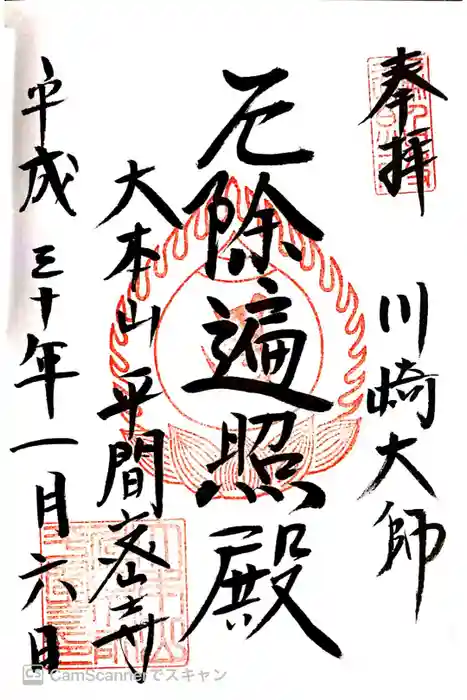 奉拝
川崎大師
厄除遍照殿
大本山 平間寺
平成三十年一月六日
CamScannerでスキャン